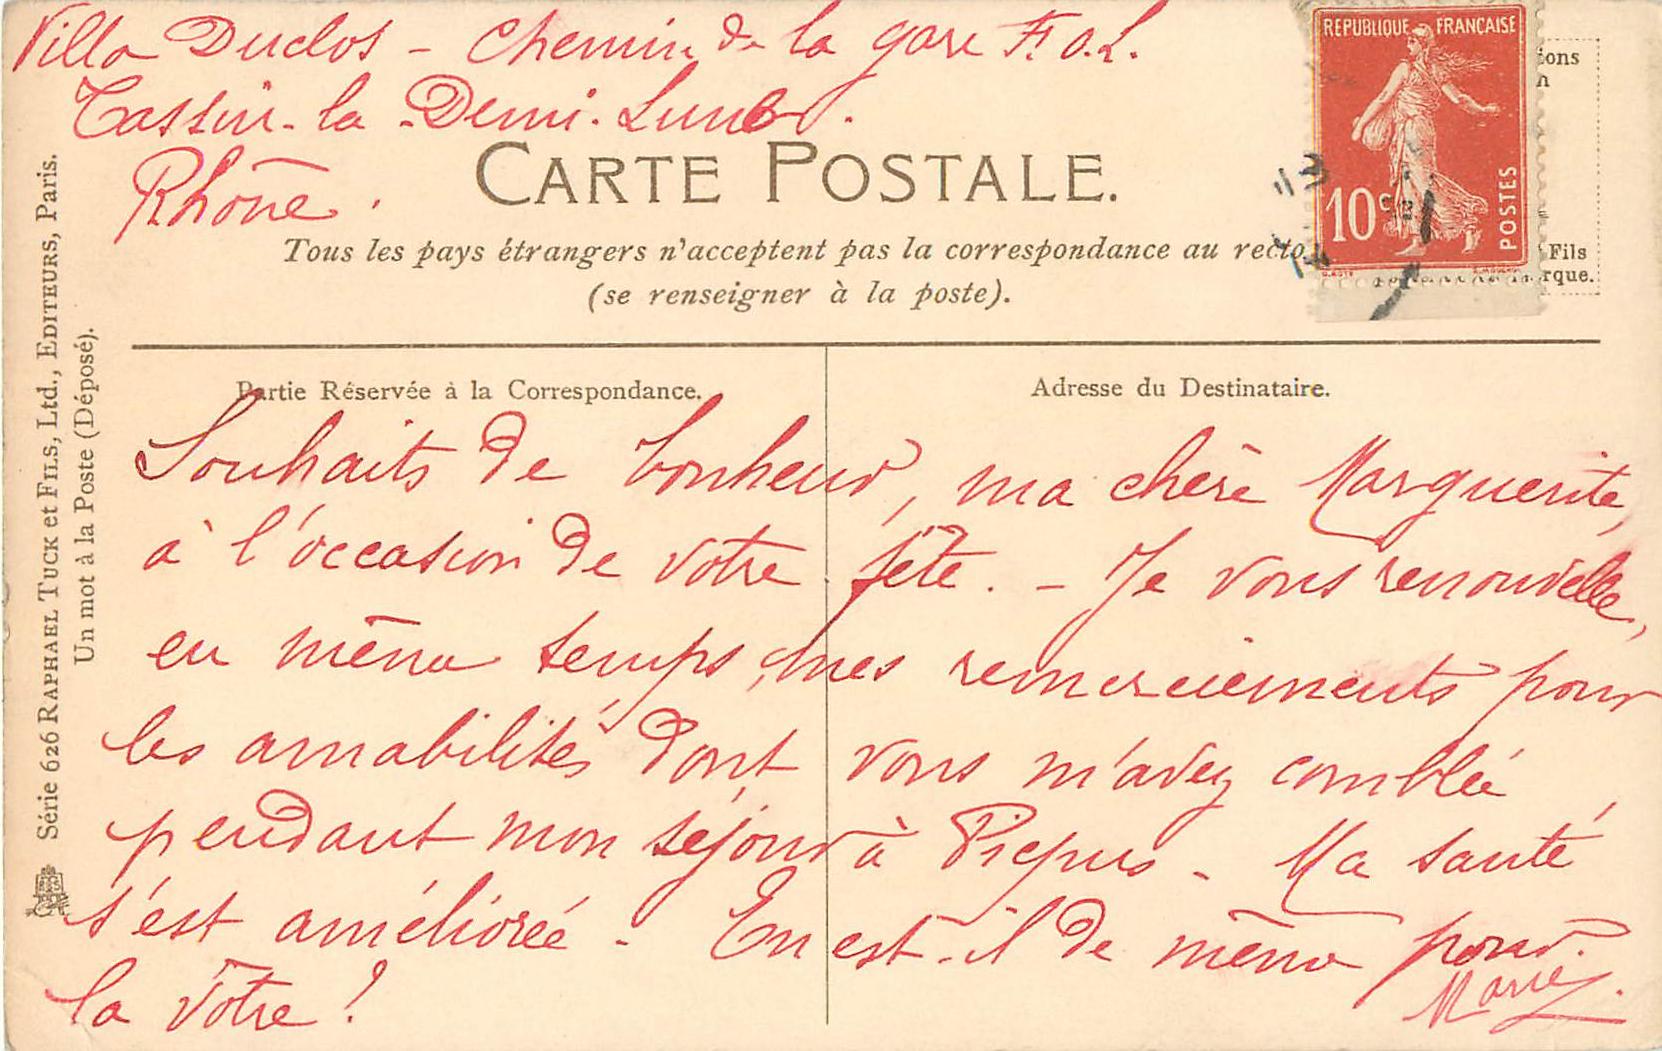 Villa Duclos - Chemin de la gare F.O.L.
Tassin-la-Demi-Lune.
Rhône.
CARTE POSTALE.
Tous les pays étrangers n'acceptent pas la correspondance au recto
(se renseigner à la poste).
REPUBLIQUE FRANÇAISE
10c
POSTES
Fils
rque.
Série 626 RAPHAEL TUCK et FILS, Ltd., EDITEURS, Paris.
Un mot à la Poste (Déposé).
Partie Réservée à la Correspondance.
Adresse du Destinataire.
Souhaits de bonheur, ma chère Marguerite,
à l'occasion de votre fête. - Je vous renouvelle,
en même temps, mes remerciements pour
les amabilités dont vous m'avez comblée
pendant mon séjour à Picpus - Ma santé
s'est améliorée - En est-il de même pour
la vôtre!
Marie